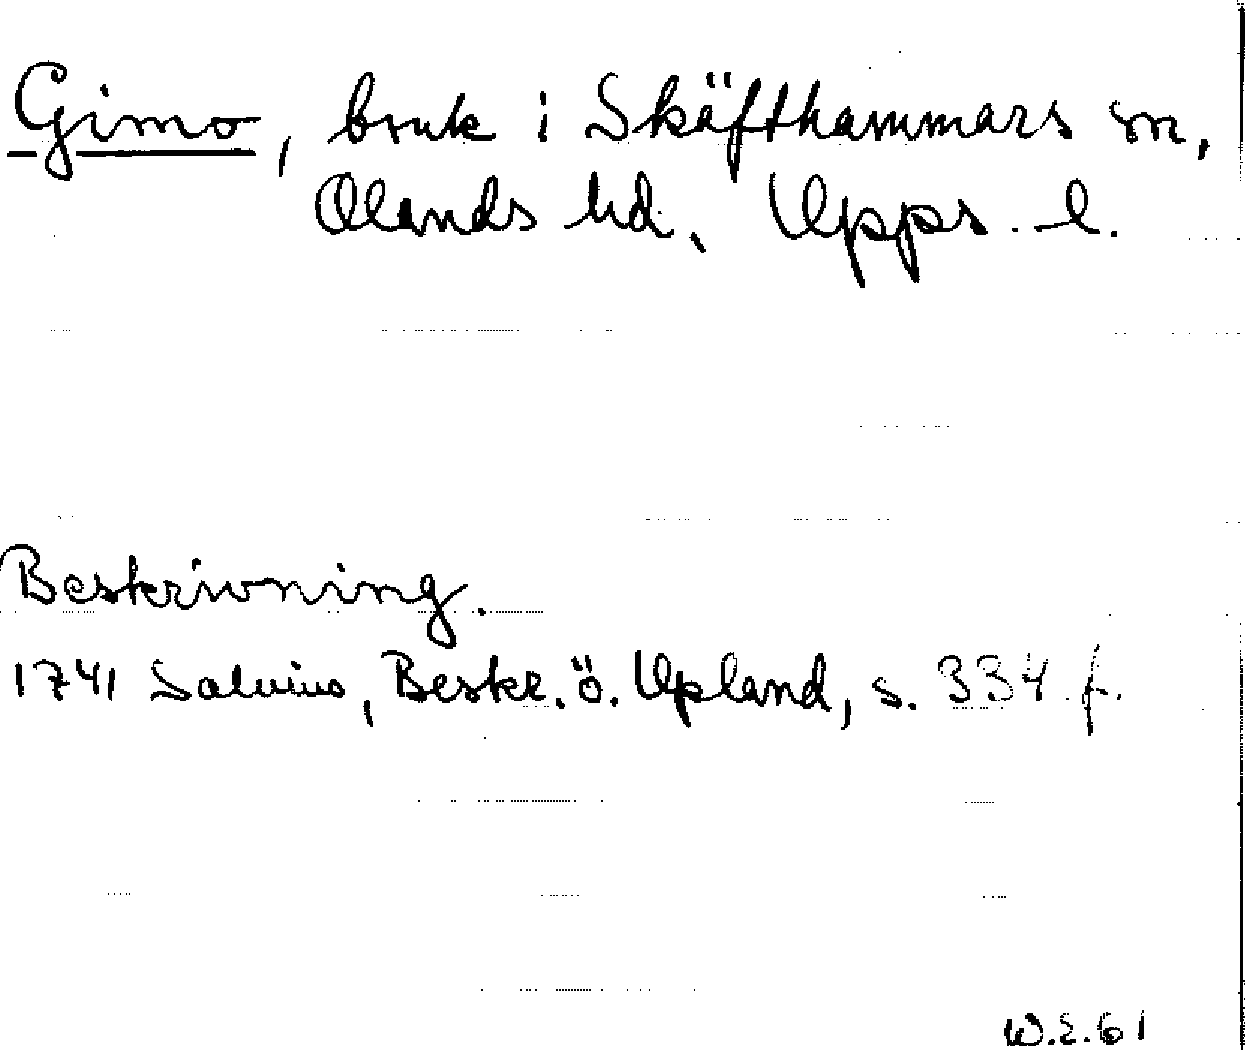 Gimo, bruk i Skäfthammars sn,
Olands hd, Upps. l.
Beskrivning.
1741 Salvius, Beskr. ö. Upland, s. 334 f.
W.E.61